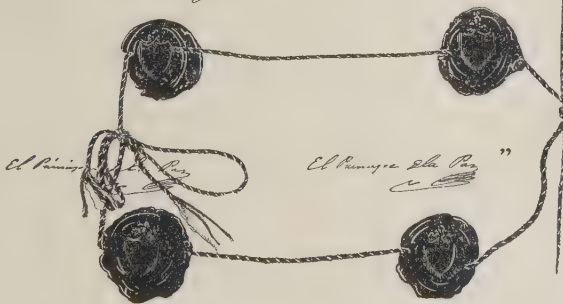 El Principe dela Paz
El Principe dela Paz "